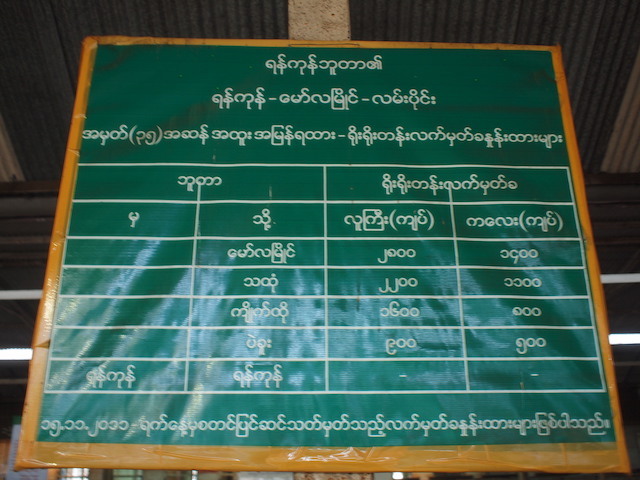 ရန်ကုန်ဘူတာ၏
ရန်ကုန် - မော်လမြိုင် - လမ်းပိုင်း
အမှတ်(၃၅)အဆန် အထူးအမြန်ရထား - ရိုးရိုးတန်းလက်မှတ်ခနှုန်းထားများ
ဘူတာ ရိုးရိုးတန်းလက်မှတ်ခ
မှ သို့ လူကြီး(ကျပ်) ကလေး(ကျပ်)
မော်လမြိုင် ၂၈၀၀ ၁၄၀၀
သထုံ ၂၂၀၀ ၁၁၀၀
ကျိုက်ထို ၁၆၀၀ ၈၀၀
ပဲခူး ၉၀၀ ၅၀၀
ရန်ကုန် ရန်ကုန် - -
၁၅.၁၁.၂၀၁၁ - ရက်နေ့မှစတင်ပြင်ဆင်သတ်မှတ်သည့်လက်မှတ်ခနှုန်းထားများဖြစ်ပါသည်။